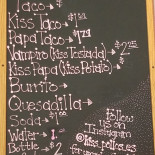 Taco →
Kiss Taco → $1.50
Papa Taco →
Vampiro (Kiss Tostada) → $2.25
Kiss Papa (Kiss Potato) →
Burrito →
Quesadilla →
Soda → $1.00
Water →
Bottle → 2
Follow
us on
Instagram